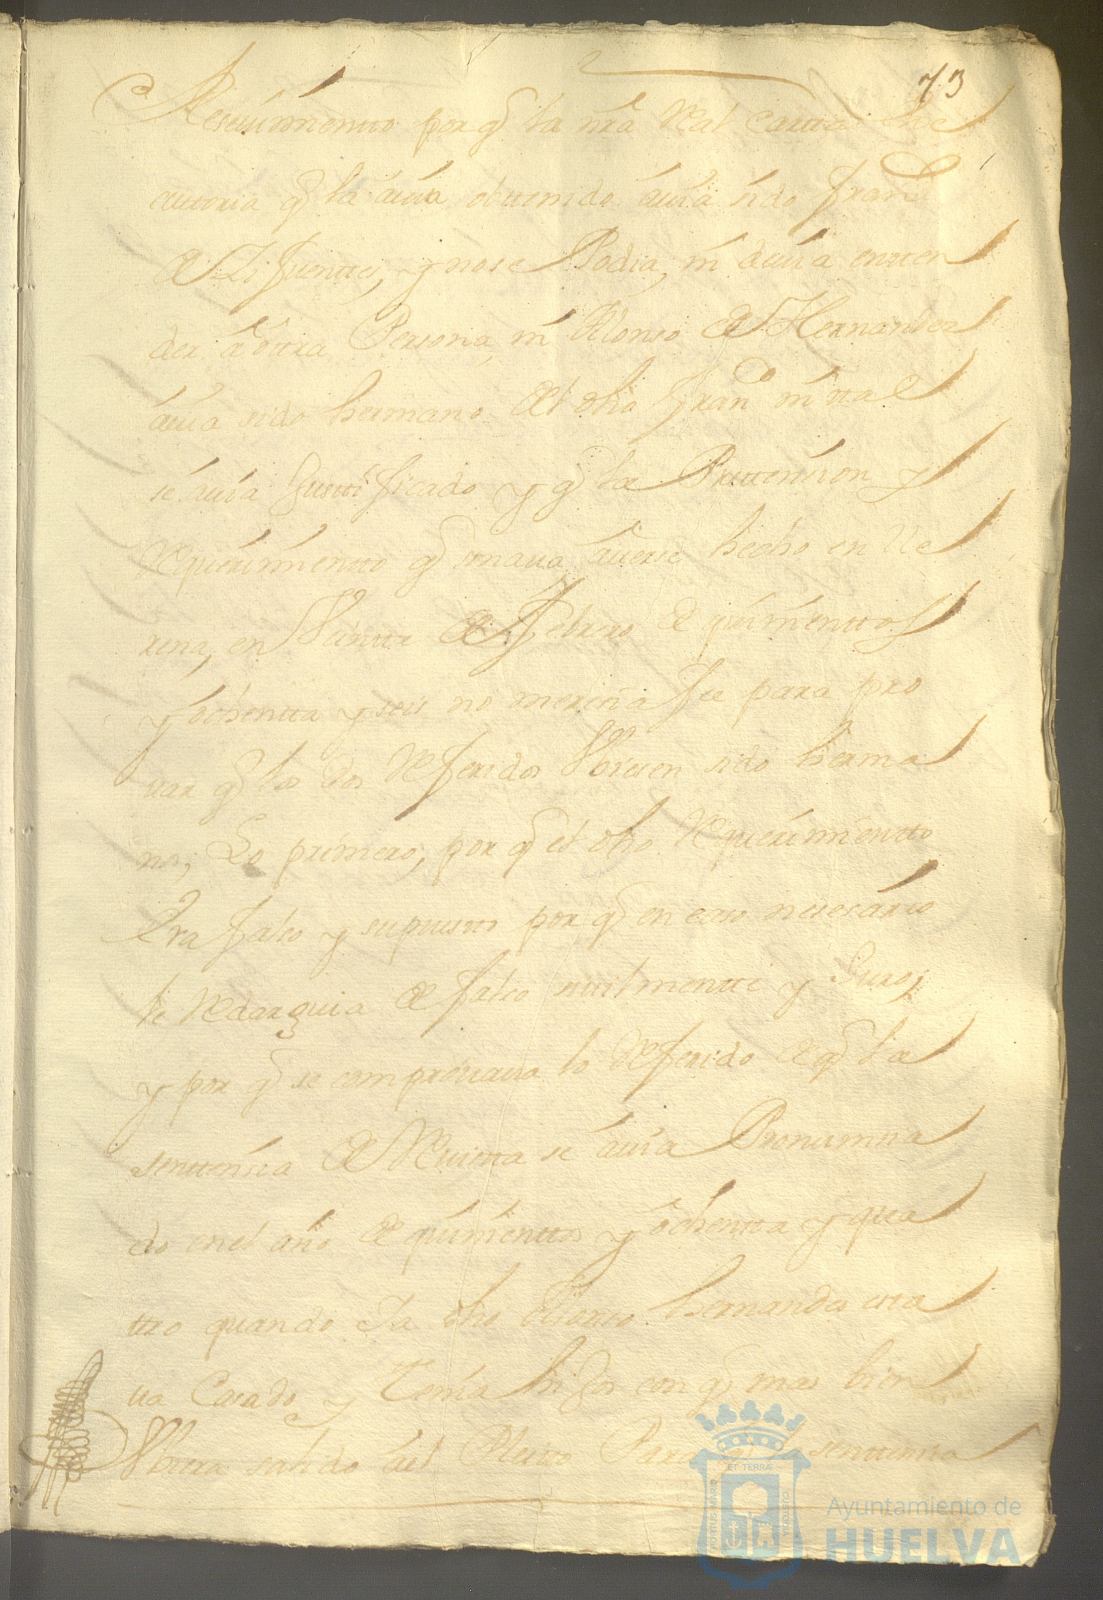 73
Reseuimientto porq̃ la nrã Real Cartta Exe
cutoria q̃ la auia obtenido auia sido Fran.co
de Zifuentes, y no se Podia, ni deuia entten
der a otra Persona, ni Alonso de Hernandez
auia sido hermano del dho Fran.co ni tal
se auia Justtificado y q̃ la Prettension y
Requerimientto q̃ sonaua auerse hecho en Lle
rena, en Veintte de Febrero de quinienttos
y ochentta y seis no merecia fee para pro
uar q̃ los dos Referidos Vbiesen sido herma
nos, Lo primero, por q̃ el dho Requerimientto
Era falso y supuestto por q̃ en caso necesario
le Redarguia de falso siuilmentte y Juro,
y por q̃ se comprouaua lo Referido de q̃ la
senttensia de Reuistta se auia Pronunttia
do en el año de quinienttos y ochentta y qua
ttro quando Ya dho Alonso hernandez esta
ua Casado y Tenia hijos con q̃ mas bien
Vbiera salido del Pleito Para senttensia
Ayuntamiento de
HUELVA